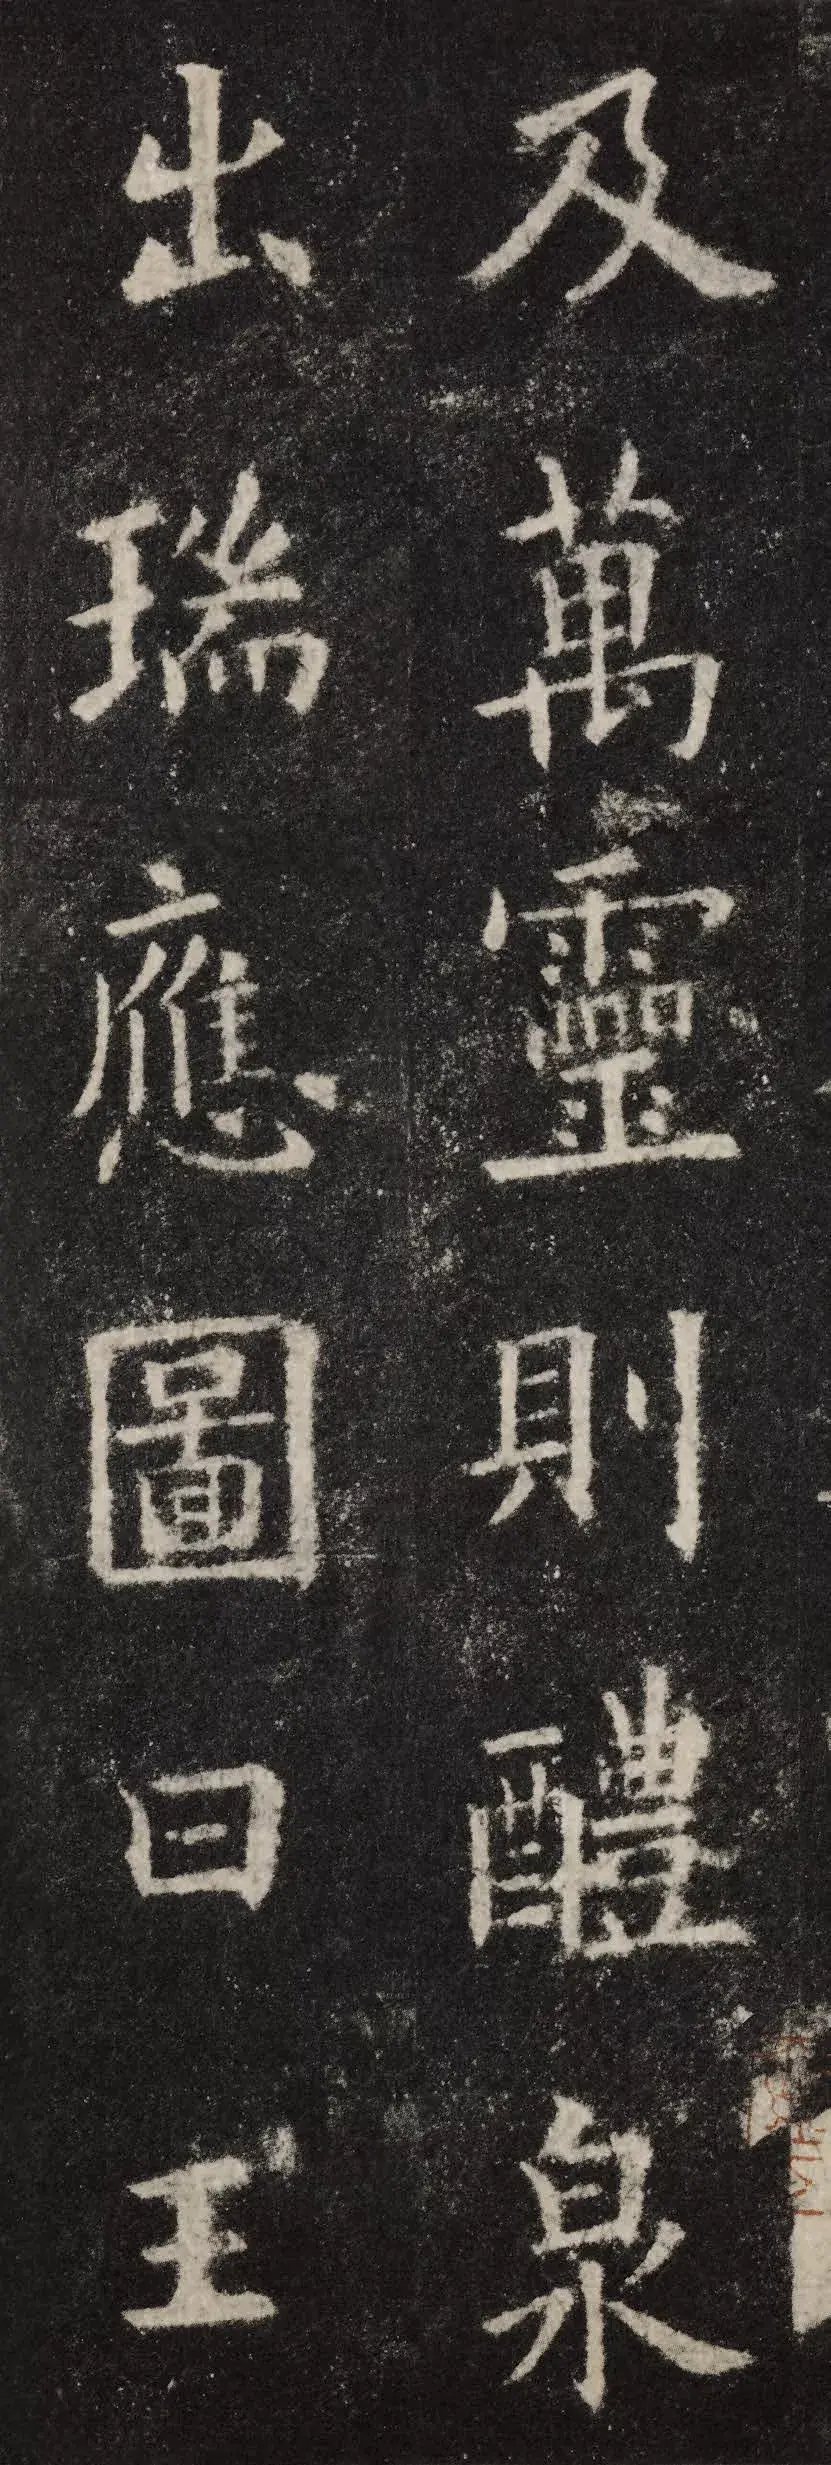 及萬靈則醴泉
出瑞應圖曰王